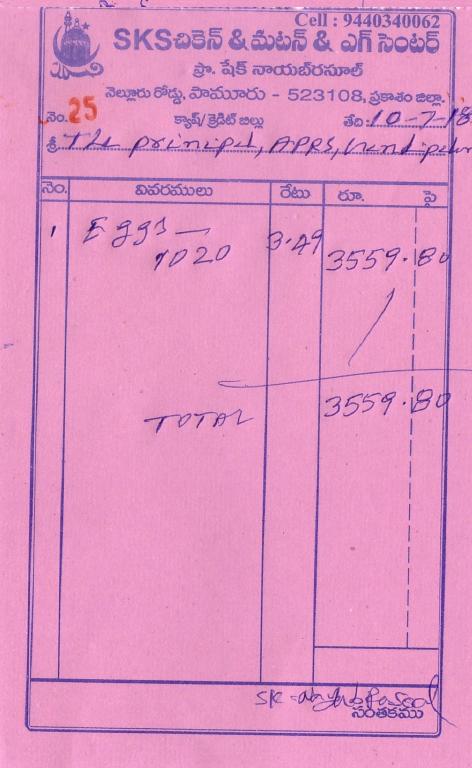 Cell : 9440340062
SKS చికెన్ & మటన్ & ఎగ్ సెంటర్
ప్రొ. షేక్ నాయబ్‌రసూల్
నెల్లూరు రోడ్డు, పామూరు - 523108, ప్రకాశం జిల్లా.
నెం. 25 క్యాష్/క్రెడిట్ బిల్లు తేది: 10-7-18
శ్రీ The principal, APRS,
నెం. వివరములు రేటు రూ. పై
1 Eggs — 1020 3.49 3559.80
TOTAL 3559.80
సంతకము